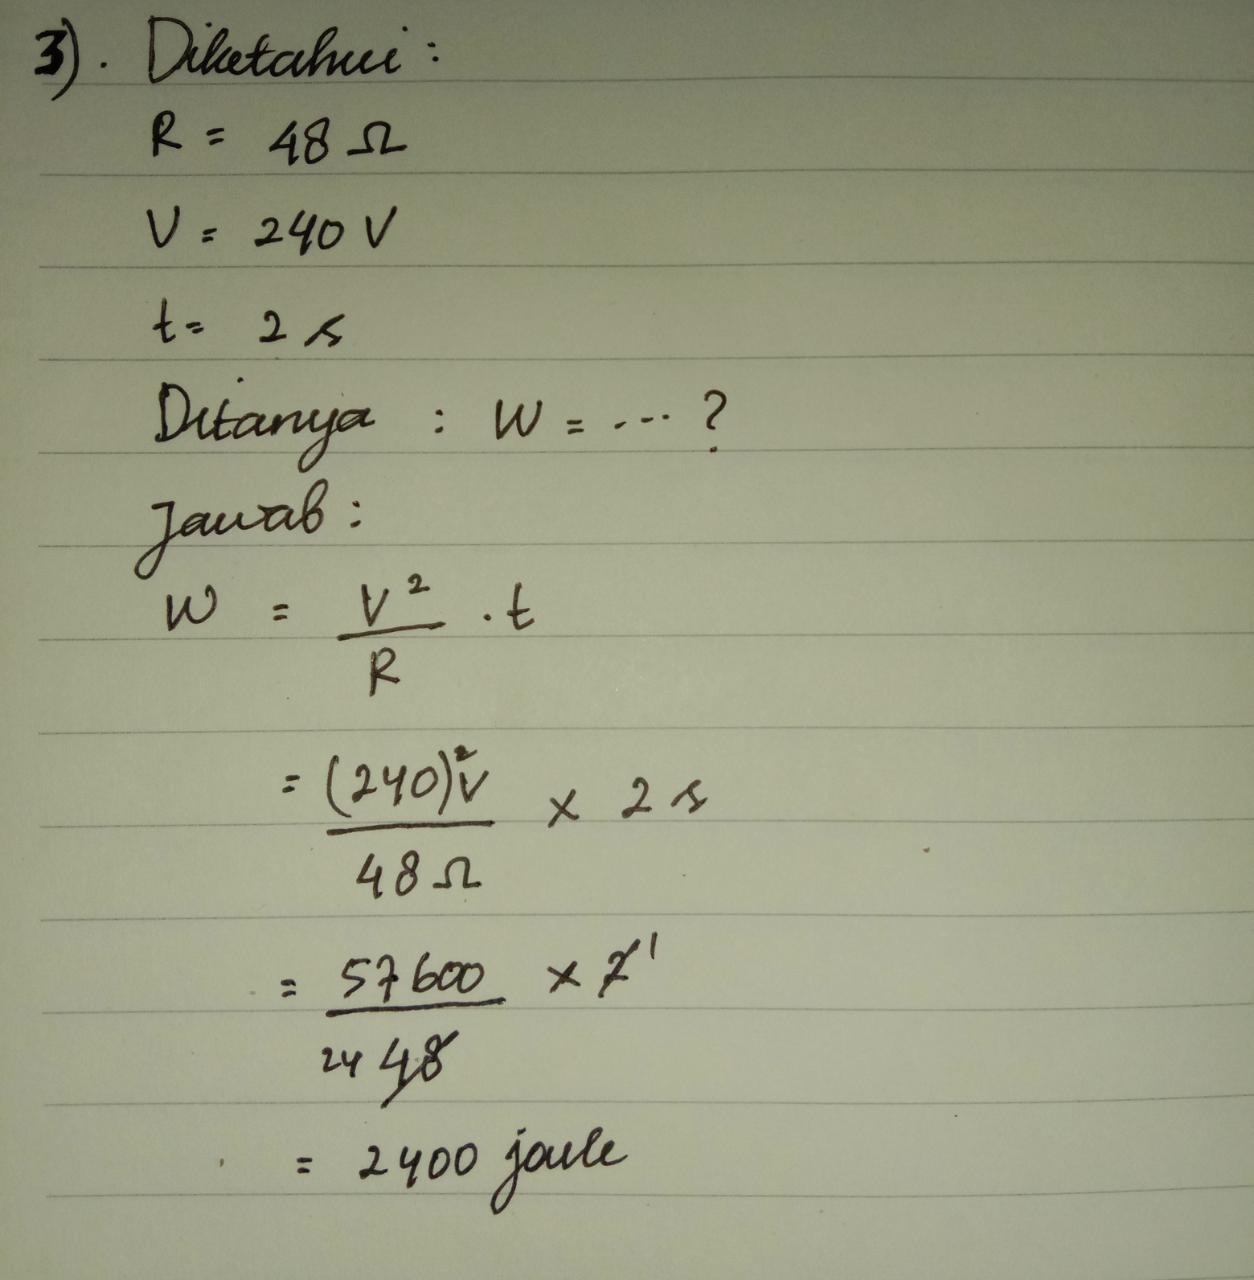 3). Diketahui :
R = 48 Ω
V = 240 V
t = 2 s
Ditanya : W = .... ?
Jawab :
W = V² . t
R
= (240)² V x 2 s
48 Ω
= 57600 x 2 1
24 48
= 2400 joule